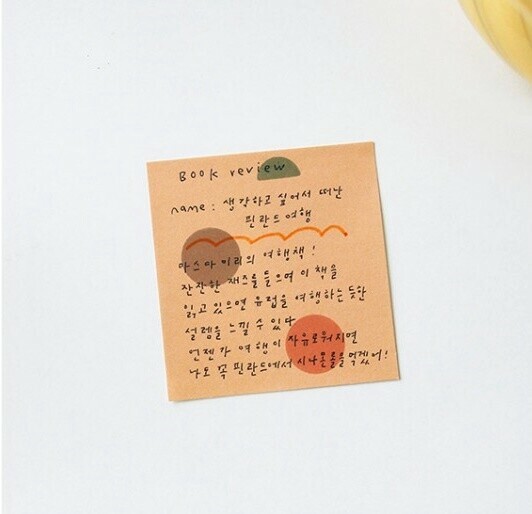 Book review
name : 생각하고 싶어서 떠난
핀란드 여행
마스다 미리의 여행책 !
잔잔한 재즈를 들으며 이 책을
읽고 있으면 유럽을 여행하는 듯한
설렘을 느낄 수 있다
언젠가 여행이 자유로워지면
나도 꼭 핀란드에서 시나몬롤을 먹겠어!